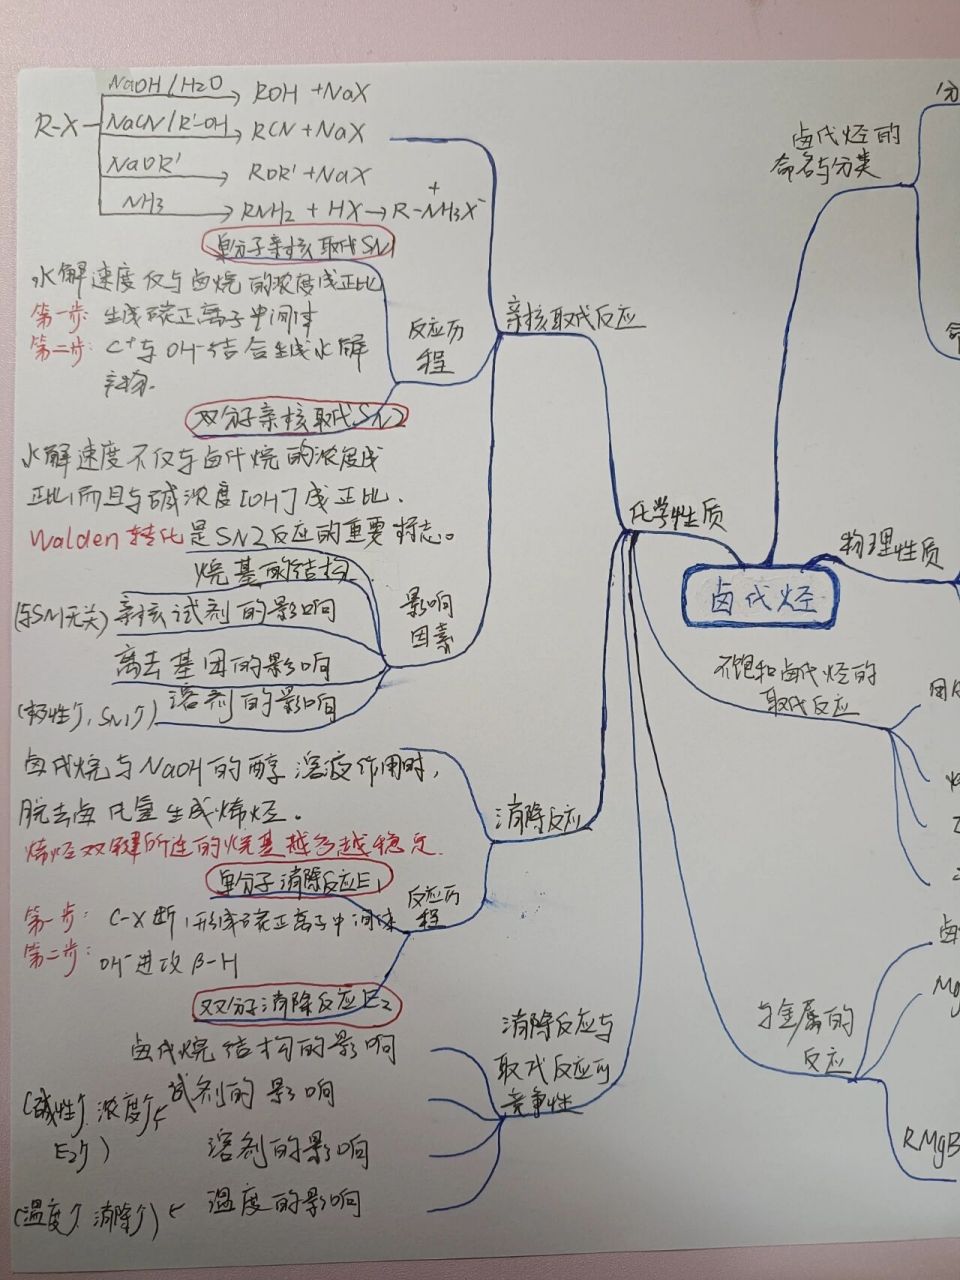 NaOH/H2O
ROH +NaX
R-X
NaCN/R'-OH
RCN+NaX
NaOR'
ROR'+NaX
NH3
RNH2 + HX→R-NH3X⁻
+
单分子亲核取代SN1
水解速度仅与卤烷的浓度成正比
第一步: 生成碳正离子中间体
第二步: C⁺与OH⁻结合生成水解
产物.
反应历
程
双分子亲核取代SN2
水解速度不仅与卤代烷的浓度成
正比,而且与碱浓度[OH⁻]成正比.
Walden转化是SN2反应的重要标志。
烷基的结构
(与SN1无关) 亲核试剂的影响
离去基团的影响
(极性↑, SN1↑) 溶剂的影响
影响
因素
亲核取代反应
卤代烷与NaOH的醇溶液作用时,
脱去卤化氢生成烯烃。
烯烃双键所连的烷基越多越稳定.
单分子消除反应E1
第一步: C-X断,形成碳正离子中间体
第二步: OH⁻进攻β-H
反应历
程
双分子消除反应E2
消除反应
卤代烷结构的影响
(碱性↑ 浓度↑ 试剂的影响
E2↑)
溶剂的影响
(温度↑ 消除↑) 温度的影响
消除反应与
取代反应的
竞争性
化学性质
卤代烃
卤代烃的
命名与分类
分
命
物理性质
不饱和卤代烃的
取代反应
与金属的
反应
卤
Mg
RMgB